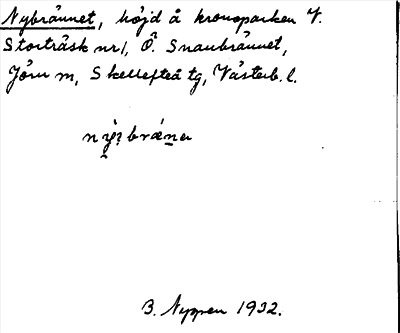 Nybrännet, höjd å kronoparken V.
Storträsk nr 1, Ö. Snaubrännet,
Jörn m, Skellefteå tg, Västerb. l.
B. Nyppen 1932.